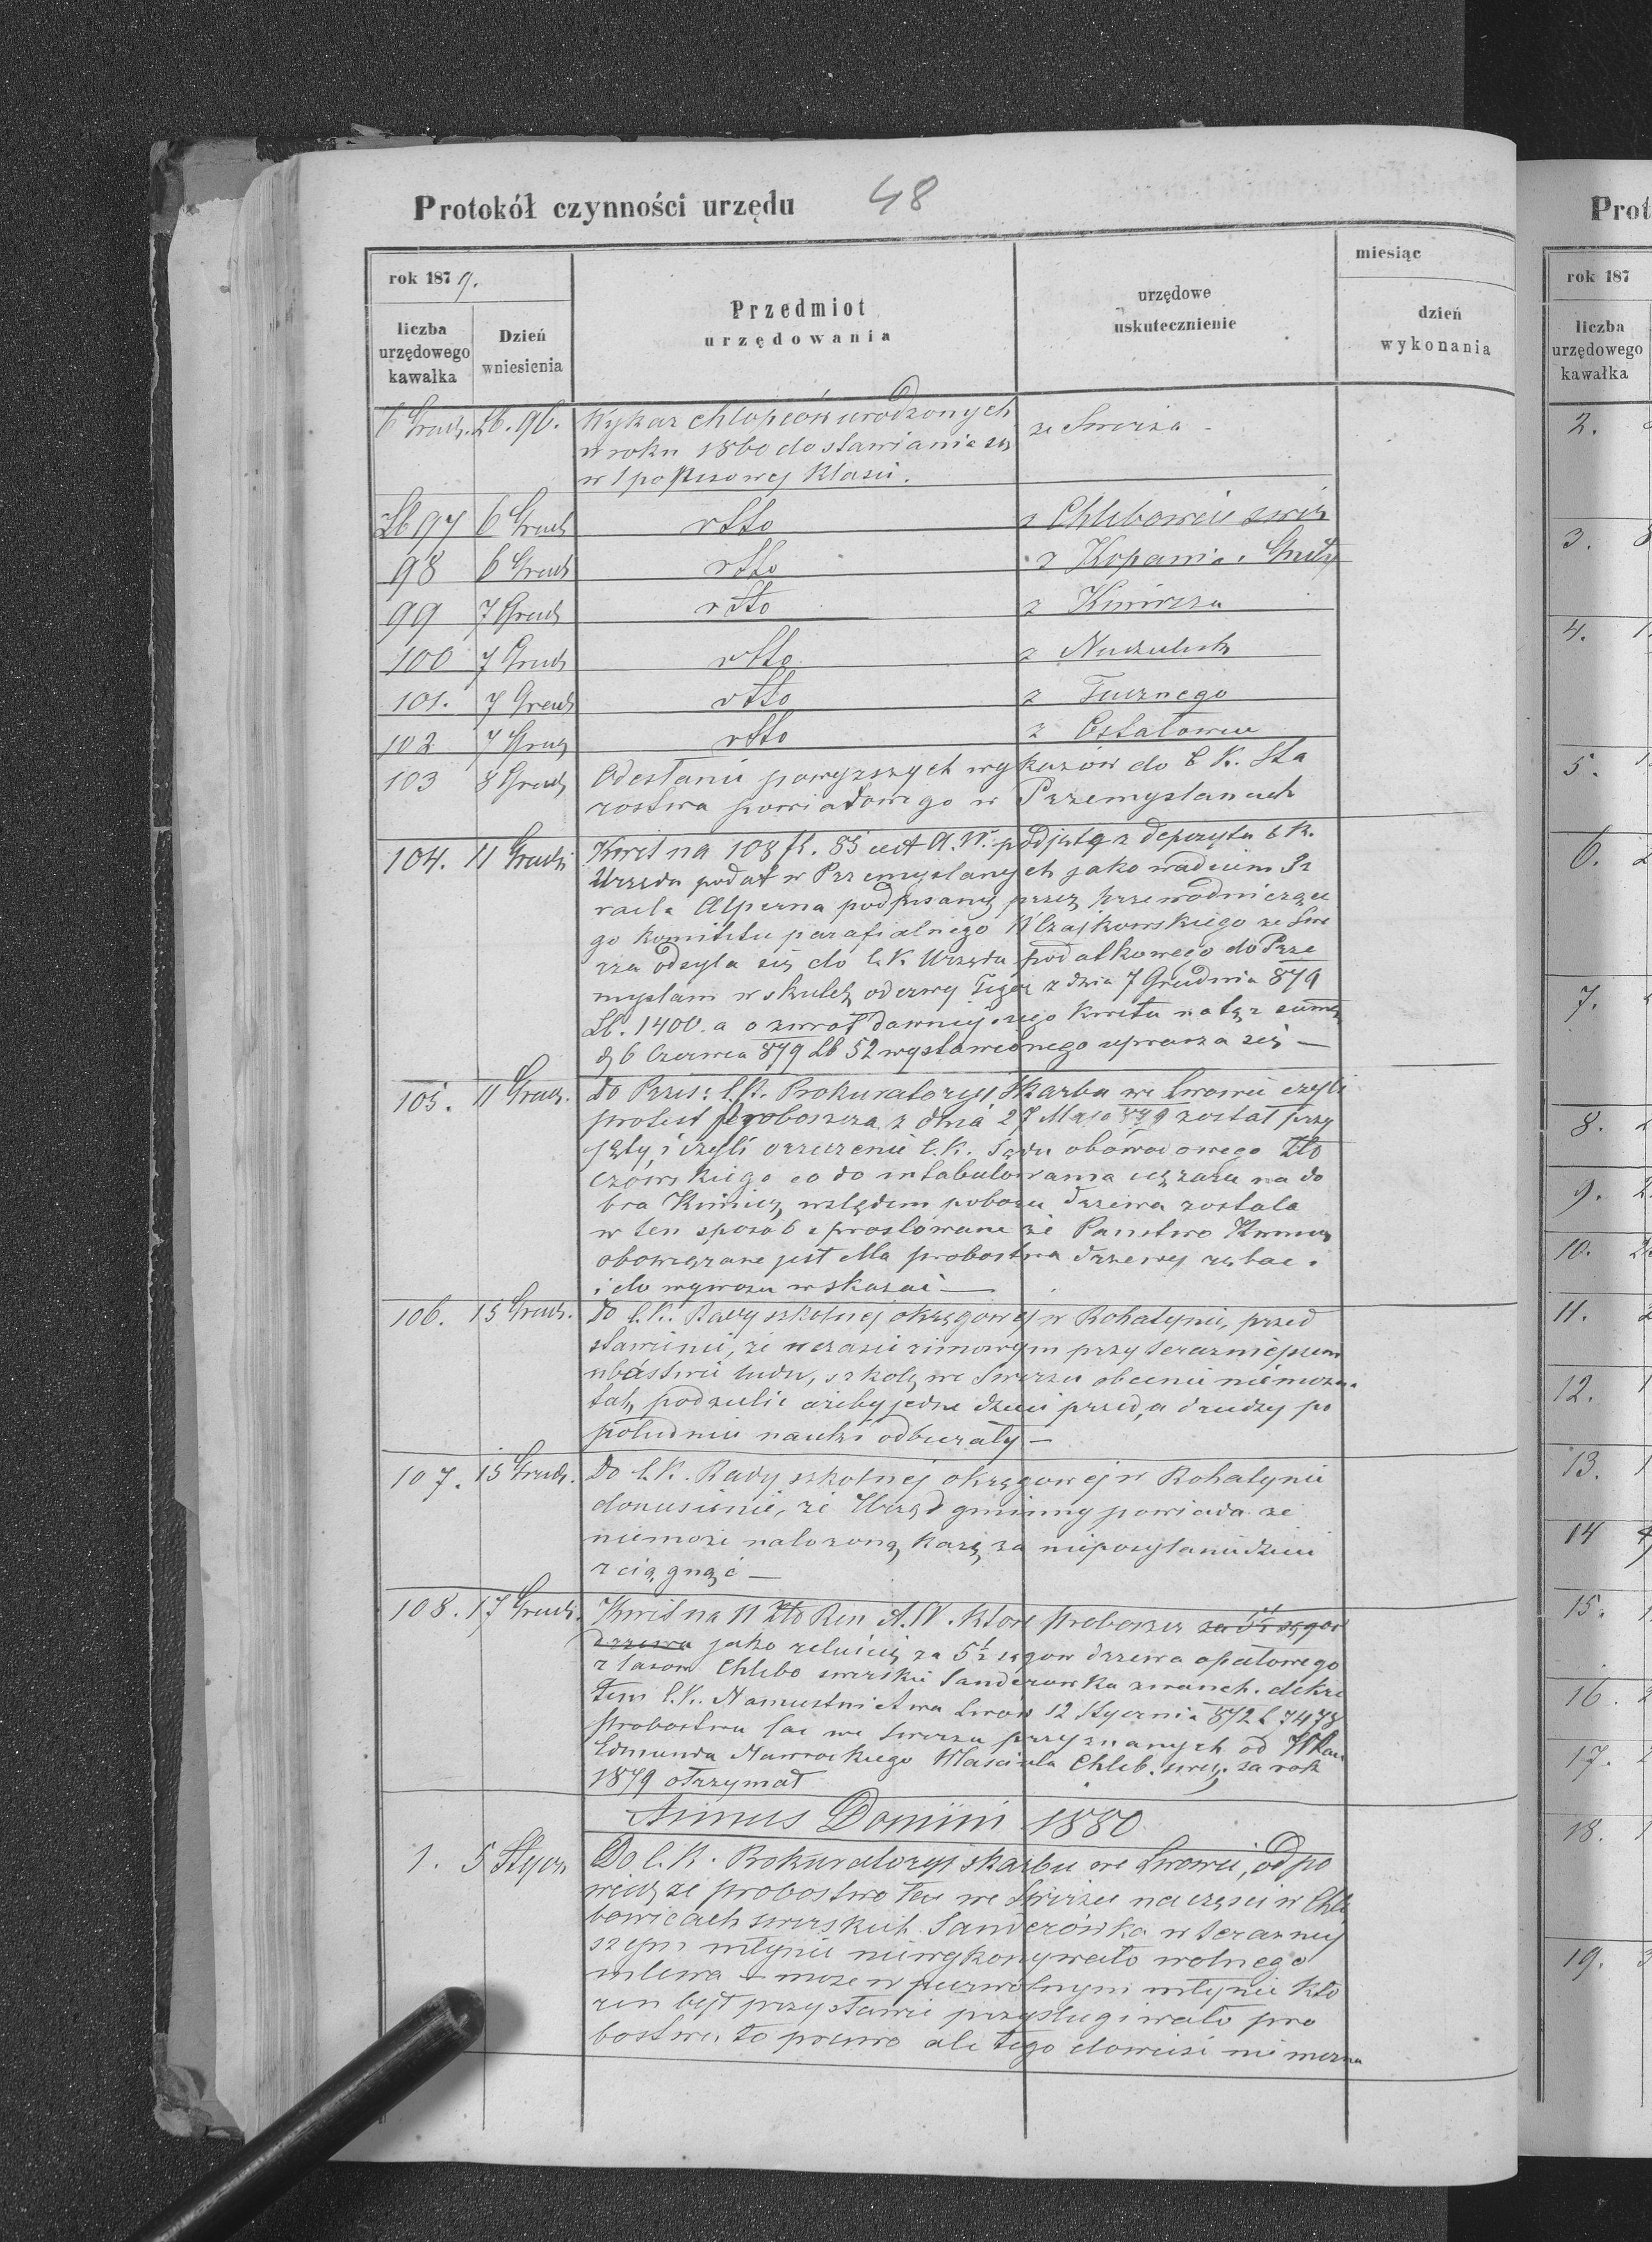 Protokół czynności urzędu 48
rok 1879.
liczba urzędowego kawałka
Dzień wniesienia
Przedmiot urzędowania
urzędowe uskutecznienie
miesiąc
dzień wykonania
6 Grudz. Lb. 96. Wykaz chłopców urodzonych ze Swirża
w roku 1860 do stawiania się
w 1 popisowej Klasie.
Lb 97 6 Grudz dtto z Chlebowic swirz
98 6 Grudz dtto z Kopania i Hniłej
99 7 Grudz dtto z Kimirza
100 7 Grudz dtto z
101. 7 Grudz dtto z Tucznego
102 7 Grudz dtto z Ostałowic
103 8 Grudz Odesłanie powyższych wykazów do C. K. Sta
rostwa powiatowego w Przemyslanach
104. 11 Grudz Kwit na 108 fl. 85 cent A. W. podjętą z depozytu C. K.
Urzędu podat w Przemyslanych jako wadium Iz
raela Alperna podpisany przez przewodniczące
go Komitetu parafialnego Czajkowskiego ze Swi
rza odsyła się do C. K. Urzędu podatkowego do Prze
myslan w skutek odezwy Tegoż z dnia 7 Grudnia 879
Lb. 1400. a o zwrot dawniejszego Kwitu na tęż sumę
d 6 Czerwca 879 Lb 52 wystawionego uprasza się —
105. 11 Grudz. Do Prześ: C. K. Prokuratoryi Skarbu we Lwowie czyli
protest proboszcza z dnia 27 Maja 879 został przy
jęty i czyli orzeczenie C. K. Sądu obwodowego Zło
czowskiego co do intabulowania ciężaru na do
bra Kimirz względem poboru drzewa została
w ten sposób sprostowane że Panstwo Kimirz
obowiązane jest dla probostwa drzewo rębac
i do wywozu wskazać —
106. 15 Grudz. Do C. K. Rady szkolnej okręgowej w Rohatynie, przed
stawienie, że w czasie zimowym przy terazniejszem
ubóstwie ludu, szkołę we Swirzu obecnie niemożna
tak podzielic ażeby jedne dzieci przed, a drudzy po
południu nauki odbierały —
107. 15 Grudz. Do C. K. Rady szkolnej okręgowej w Rohatynie
doniesienie, że Urząd gminny powiada ze
niemoże nałozoną karę za nieposyłanie dzieci
zciągnąć —
108. 17 Grudz. Kwit na 11 Zło Ren A. W. Które proboszcz za 5½ sągow
drzewa jako reluicię za 5½ sągow drzewa opałowego
z lasow Chlebo swirskie Sanderowka zwanch. dekre
tem C. K. Namiestnictwa Lwow 12 Stycznia 872 L 7478
probostwu łac we Swirzu przyznanych od
Edmunda Nawrockiego Własciela Chleb. swirz. za rok
1879 otrzymał
Annus Domini 1880
1. 5 Stycz. Do C. K. Prokuratoryi skarbu we Lwowie, odpo
wiedz ze probostwo łac we Swirzu na części w Chle
bowicach swirskich Sanderówka w terazniej
szym młynie niewykonywało wolnego
mlewa – może w pierwotnym młynie Któ
ren był przy stawie przysługiwało pro
bostwu to prawo ale tego dowieść nie mozna
Prot
rok 187
liczba urzędowego kawałka
2.
3.
4.
5.
6.
7.
8.
9.
10.
11.
12.
13.
14
15.
16.
17.
18.
19.